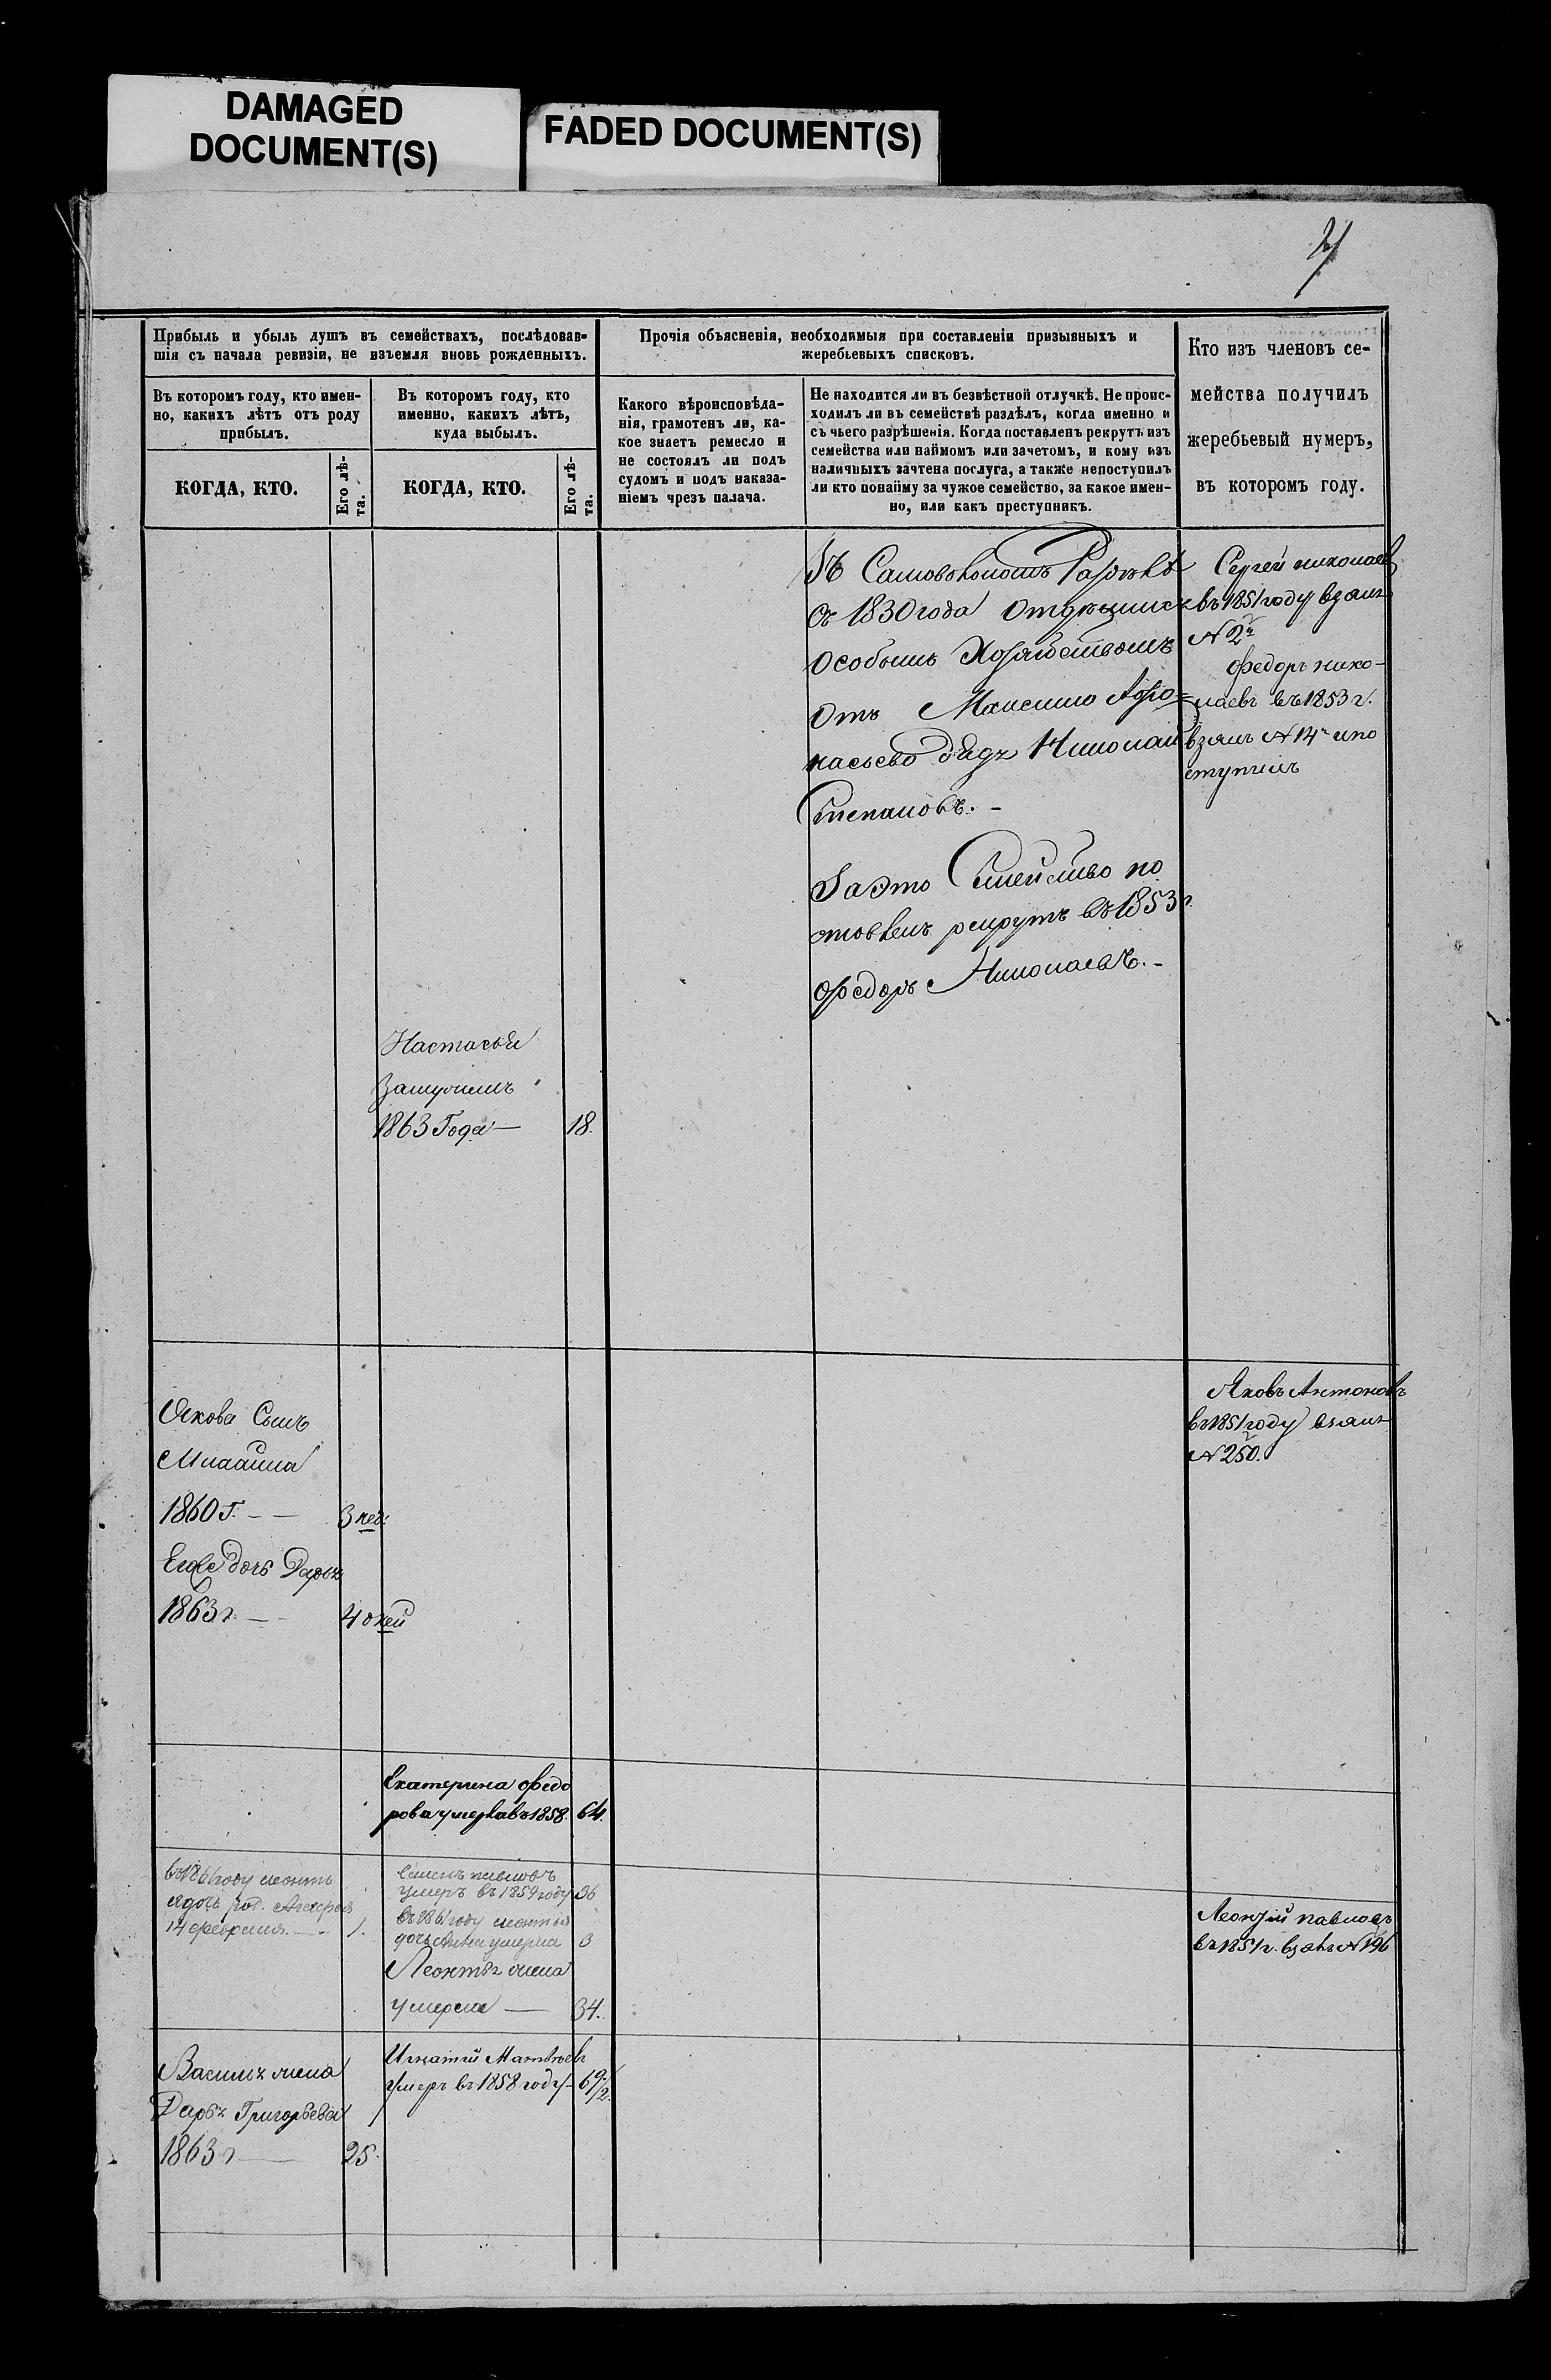 DAMAGED
DOCUMENT(S)
FADED DOCUMENT(S)
Прибыль и убыль душъ въ семействахъ, послѣдовав-
шія съ начала ревизіи, не изъемля вновь рожденныхъ.
Прочія объясненія, необходимыя при составленіи призывныхъ и
жеребьевыхъ списковъ.
Кто изъ членовъ се-
мейства получилъ
жеребьевый нумеръ,
въ которомъ году.
Въ которомъ году, кто имен-
но, какихъ лѣтъ отъ роду
прибылъ.
Въ которомъ году, кто
именно, какихъ лѣтъ,
куда выбылъ.
Какого вѣроисповѣда-
нія, грамотенъ ли, ка-
кое знаетъ ремесло и
не состоялъ ли подъ
судомъ и подъ наказа-
ніемъ чрезъ палача.
Не находится ли въ безвѣстной отлучкѣ. Не проис-
ходилъ ли въ семействѣ раздѣлъ, когда именно и
съ чьего разрѣшенія. Когда поставленъ рекрутъ изъ
семейства или наймомъ или зачетомъ, и кому изъ
наличныхъ зачтена послуга, а также непоступилъ
ли кто понайму за чужое семейство, за какое имен-
но, или какъ преступникъ.
КОГДА, КТО.
Его лѣ-
та.
КОГДА, КТО.
Его лѣ-
та.
Въ Самовольномъ
съ 1830 года
особымъ Хозяйствомъ
отъ Максимо Афо-
насьево дядя Николай
Степановъ. -
За это Семейство по
ставленъ рекрутъ въ 1853 г.
Федоръ Николаевъ. -
Сергей николаев
въ 1851 году взялъ
N 2й
Федоръ нико-
лаевъ въ 1853 г.
взялъ N 14й и по
ступилъ
Настасья
Замужемъ
1863 Года — 18.
Якова Сынъ
1860 Г. - — 3 нед:
Его дочь Дарья
1863 г. — 4 дней
Яковъ Антоновъ
въ 1851 году взялъ
N 250.
Екатерина Федо
рова умерла въ 1858. 64.
въ 1861 году леонть
я дочь род.
14 февраля. — 1.
павловъ
умеръ въ 1859 году 36
въ 1861 году леонтья
дочь Анна умерла 3
Леонтья жена
умерла — 34.
Леонтій павловъ
въ 1851 г. взялъ N 196
Василья жена
Дарья Григорьева
1863 г — 25.
Игнатій Матвѣевъ
умеръ въ 1858 году - 69 1/2.